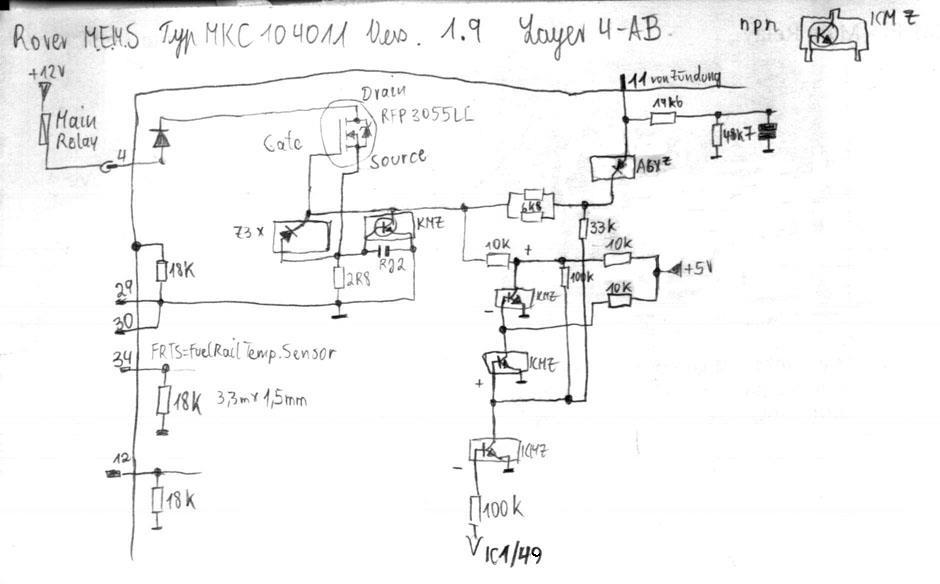 Rover MEMS Typ MKC104011 Vers. 1.9 Layer 4-AB
npn
KMZ
+12V
Main
Relay
4
Drain
RFP3055LE
Gate
Source
11 von Zündung
Z3x
KMZ
6k8
33k
10k
+
10k
100k
+5V
18K
2R8
KMZ
10k
29
-
30
34
FRTS=FuelRailTemp.Sensor
KMZ
+
18K
3,3m*1,5mm
KMZ
12
-
18K
100k
IC1/49